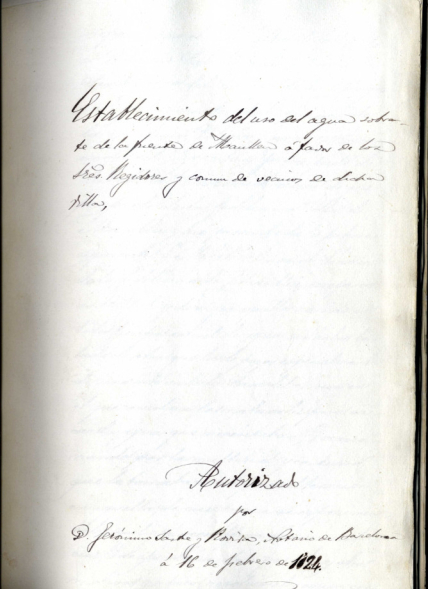 Establecimiento del uso del agua sobran-
te de la fuente de á favor de los
Sres Regidores y comun de vecinos de dicha
villa,
Autorizado
por
D. Jerónimo y Notario de Barcelona
á 16 de febrero de 1824.